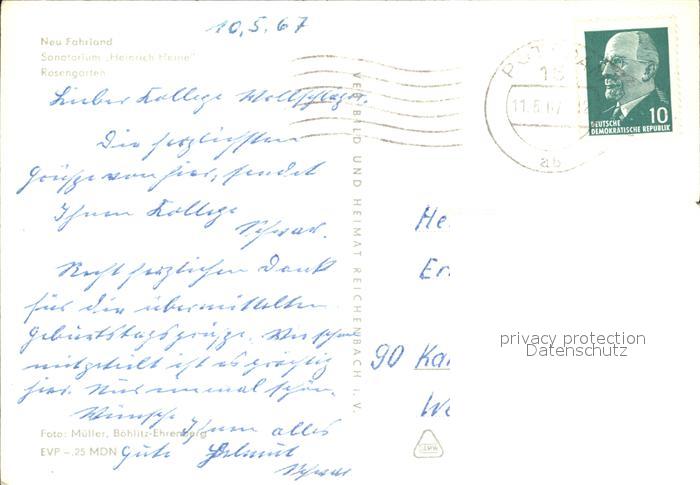 10.5.67
Neu Fahrland
Sanatorium „Heinrich Heine"
Rosengarten
Lieber Kollege
Die herzlichsten
Grüsse von hier, sendet
Ihnen Kollege
Schwar.
Recht herzlichen Dank
für die übermittelten
Geburtstagsgrüsse. Wie schon
mitgeteilt ist es prächtig
hier. Nur einmal schön.
Wünsche Ihnen alles
Gute Helmut
Schwar
Foto: Müller, Böhlitz-Ehrenberg
EVP –.25 MDN
VERLAG BILD UND HEIMAT REICHENBACH i. V.
POTSDAM
15
11.5.67
ab
10
DEUTSCHE
DEMOKRATISCHE REPUBLIK
He
Er.
90 Ka
We
privacy protection
Datenschutz